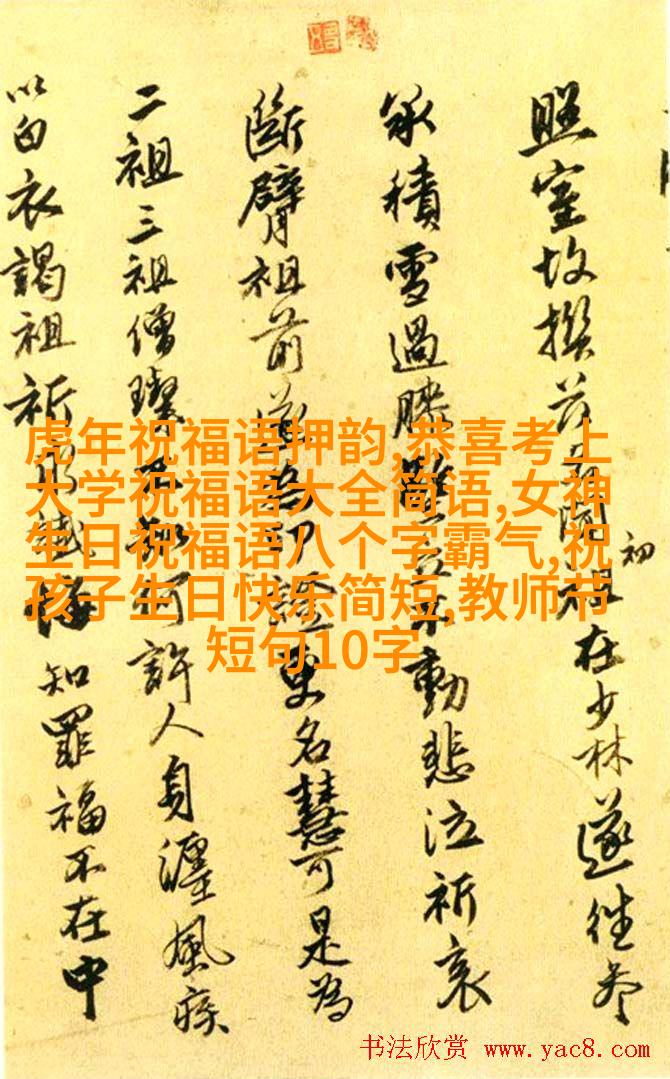 照室故撰在少林遂往參
初
承積雪過膝動悲泣祈哀
斷臂祖前印證更名慧可是為
二祖三祖僧璨何許人身纏風疾
以白衣謁祖祈知罪福不在中
虎年祝福语押韵,恭喜考上
大学祝福语大全简语,女神
生日祝福语八个字霸气,祝
孩子生日快乐简短,教师节
短句10字
书法欣赏 www.yac8.com